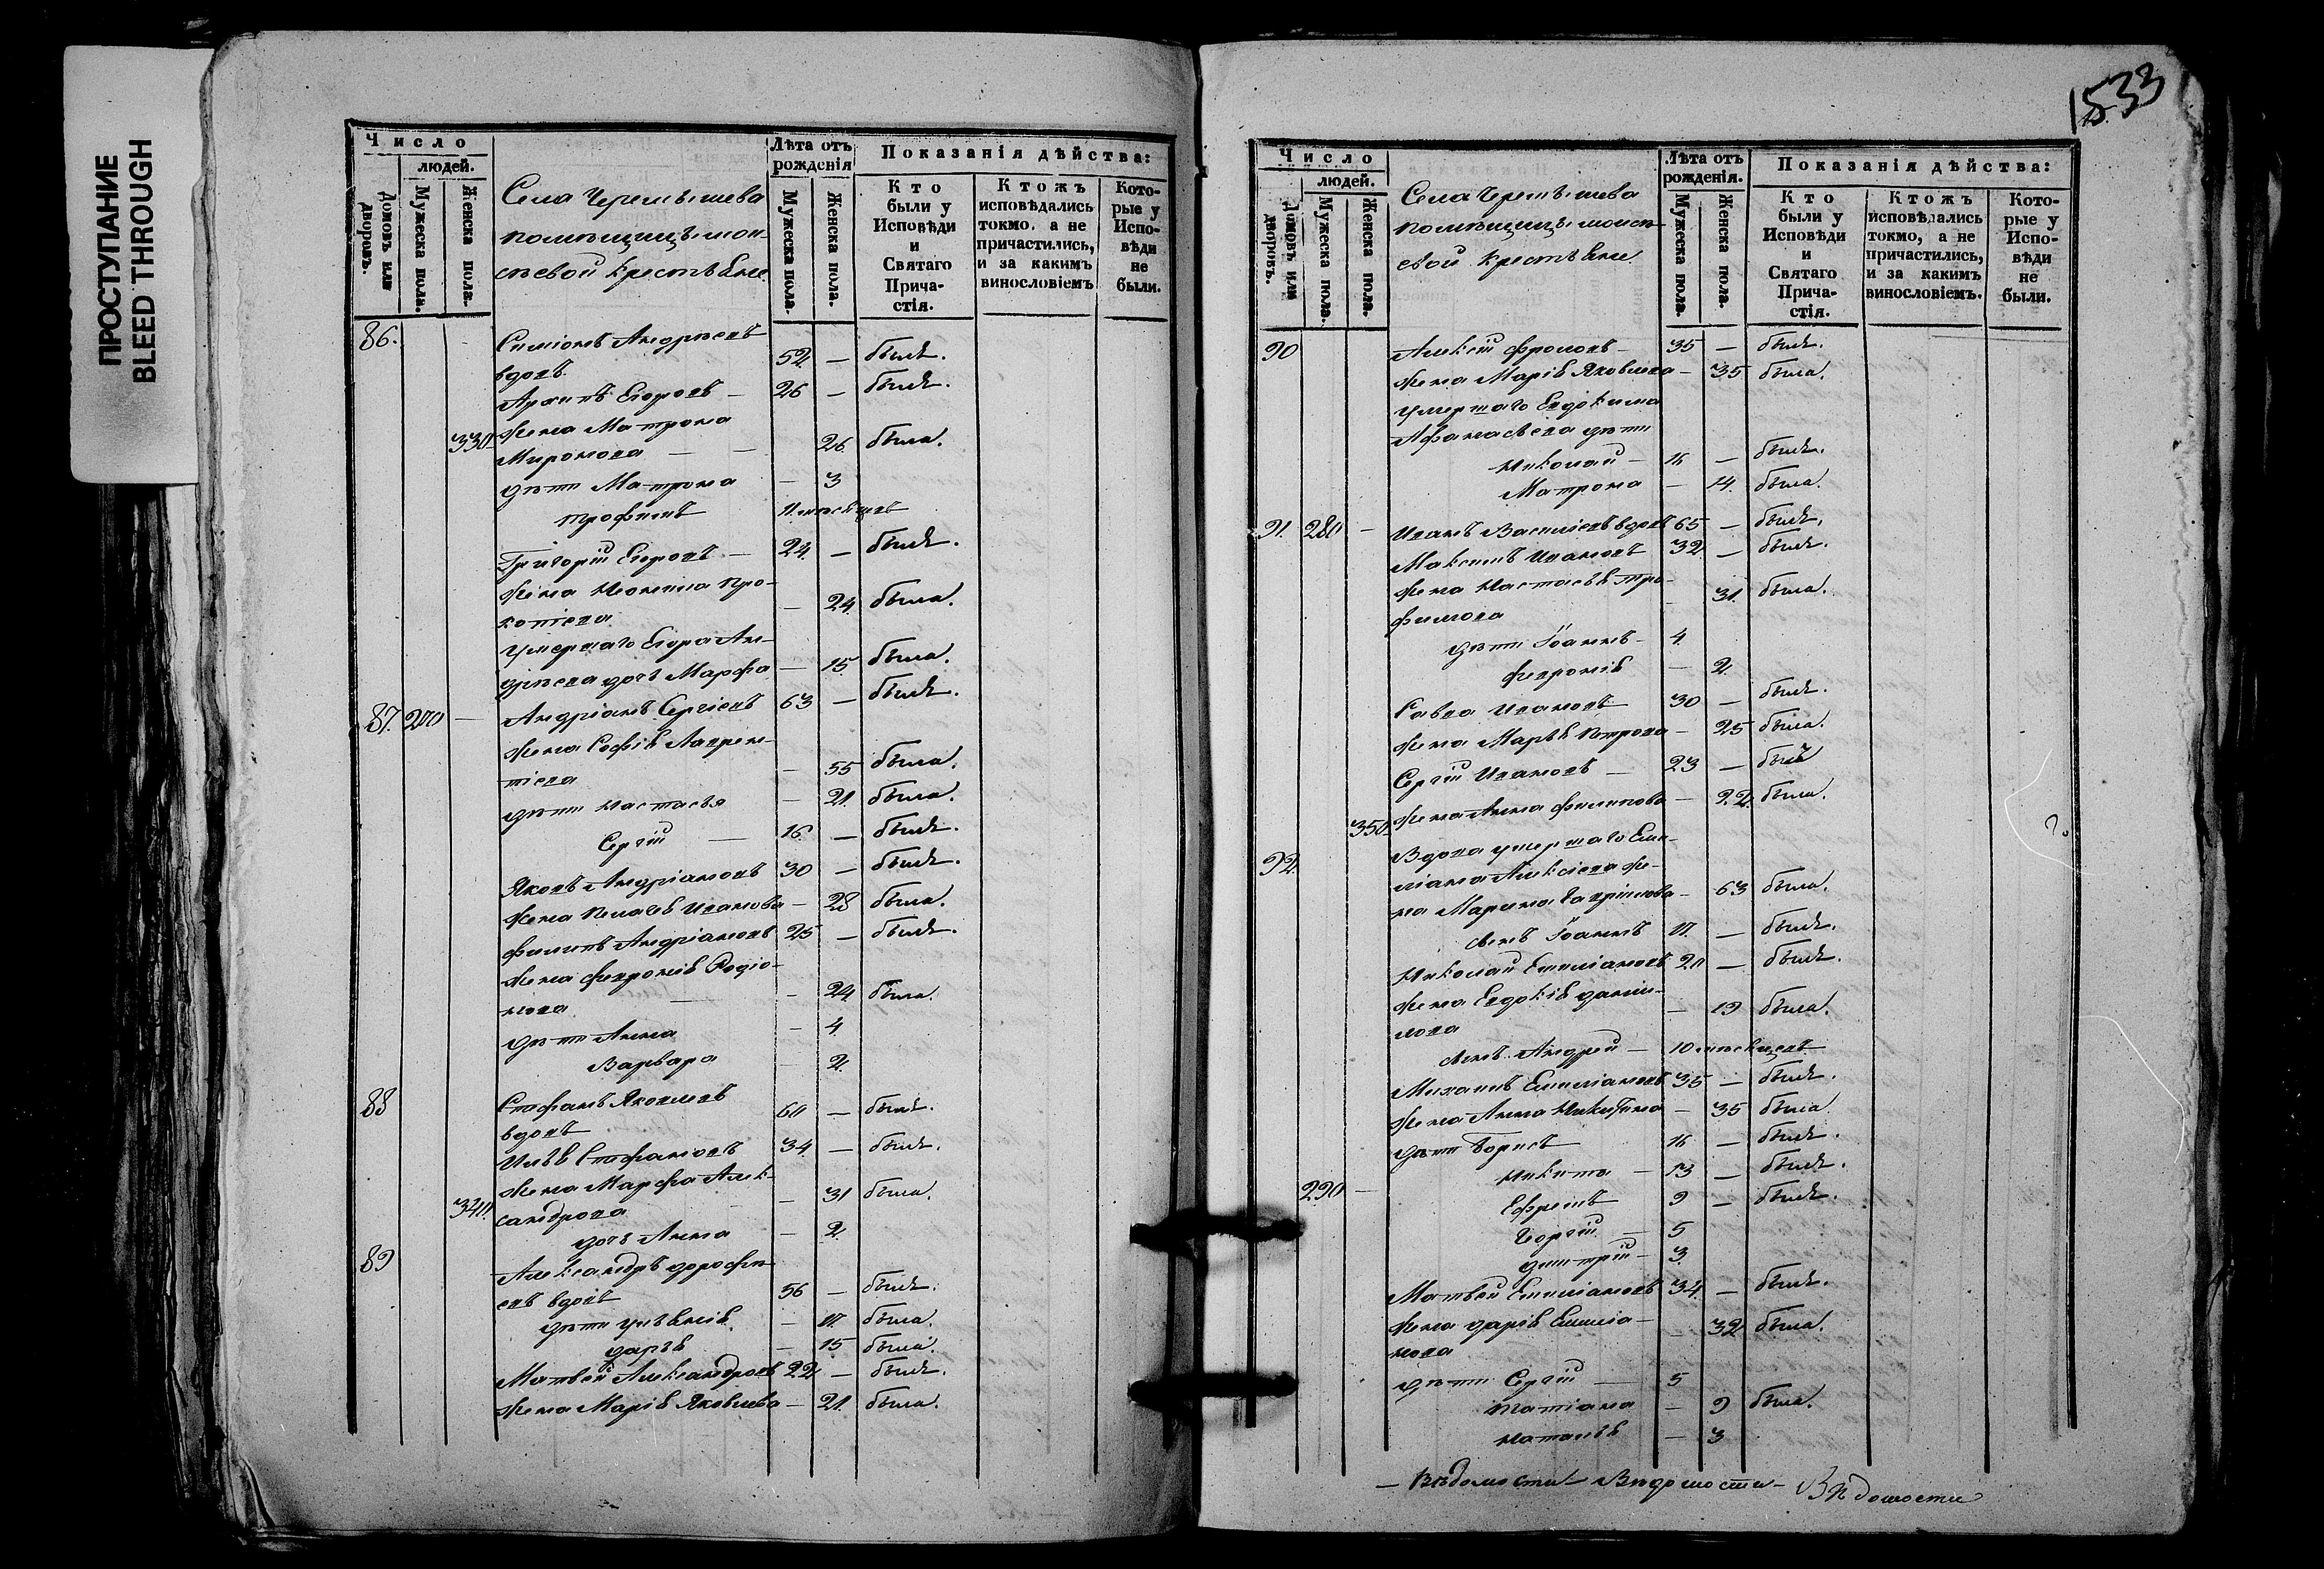 ПРОСТУПАНИЕ
BLEED THROUGH
Число
людей.
Домовъ или дворовъ.
Мужеска пола.
Женска пола.
Села Черемышева
помѣщицы
крестьяне
Лѣта отъ рожденія
Мужеска пола.
Женска пола.
Показанія дѣйства:
Кто были у Исповѣди и Святаго Причастія.
Ктожъ исповѣдались токмо, а не причастились, и за какимъ винословіемъ
Которые у Исповѣди не были.
86. Симіонъ Андреевъ
вдовъ 52 — былъ.
Архипъ Егоровъ — 26 — былъ.
330 жена Матрона
Миронова — — 26 былъа.
дѣти Матрона — 3
Трофимъ 11 мѣсяцовъ
Григорій Егоровъ — 24 — былъ.
жена Неонила Про-
копіева — 24 была.
умершаго Егора Ан-
дрѣева дочь Марфа — 15 была.
87. 270 — Андріанъ Сергіевъ 63 — былъ.
жена Софія Лаврен-
тіева — 55 была.
дѣти Настасья — 21 была.
Сергій — 16 — былъ.
Яковъ Андріановъ 30 — былъ.
жена Пелагея Иванова — 28 была.
Филипъ Андріановъ 25 — былъ.
жена Февронія Родіо-
нова — 24 была.
дѣти Анна — 4
Варвара — 2
88 Стефанъ Яковлевъ
вдовъ 60 — былъ.
Илья Стефановъ 34 — былъ.
жена Марфа Алек-
340 сандрова — 31 была.
дочь Анна — 2
89 Александръ Дорофѣ-
евъ вдовъ 56 — былъ.
дѣти Ульянія — 17 была.
Дарья — 15 была.
Матвей Александровъ 22 — былъ.
жена Марія Яковлева — 21 была.
533
Число
людей.
Домовъ или дворовъ.
Мужеска пола.
Женска пола.
Села Черемышева
помѣщицы
крестьяне
Лѣта отъ рожденія.
Мужеска пола.
Женска пола.
Показанія дѣйства:
Кто были у Исповѣди и Святаго Причастія.
Ктожъ исповѣдались токмо, а не причастились, и за какимъ винословіемъ.
Которые у Исповѣди не были.
90 Алексій Фроловъ — 35 — былъ.
жена Марія Яковлева — 35 была.
умершаго Евдокима
Афанасьева дѣти
Николай — 16 — былъ.
Матрона — 14 была.
91. 280 — Иванъ Василіевъ вдовъ 65 — былъ.
Максимъ Ивановъ 32 — былъ.
жена Настасья Тро-
фимова — 31 была.
дѣти Іоаннъ — 4
Февронія — 2
Савва Ивановъ 30 — былъ.
жена Марья Петрова — 25 была.
Сергій Ивановъ — 23 — былъ
350 жена Анна Филипова — 22 была.
92 Вдова умершаго Еми-
ліана Алексіева же-
на Марина Гавріилова — 63 была.
сынъ Іоаннъ 17 — былъ.
Николай Емиліановъ 20 — былъ.
жена Евдокія Дани-
лова — 19 была.
сынъ Андрей — 10 мѣсяцевъ
Михаилъ Емиліановъ 35 — былъ.
жена Анна Никитина — 35 была.
дѣти Борисъ 16 — былъ.
Никита — 13 — былъ.
290 — Ефремъ 9 — былъ.
Георгій — 5
Дмитрій — 3
Матвей Емиліановъ 34 — былъ.
жена Дарія Емилiа-
нова — 32 была.
дѣти Сергій — 5
Татіана — 9 была.
Наталья — 3
— Вѣдомости — Вѣдомости — Вѣдомости